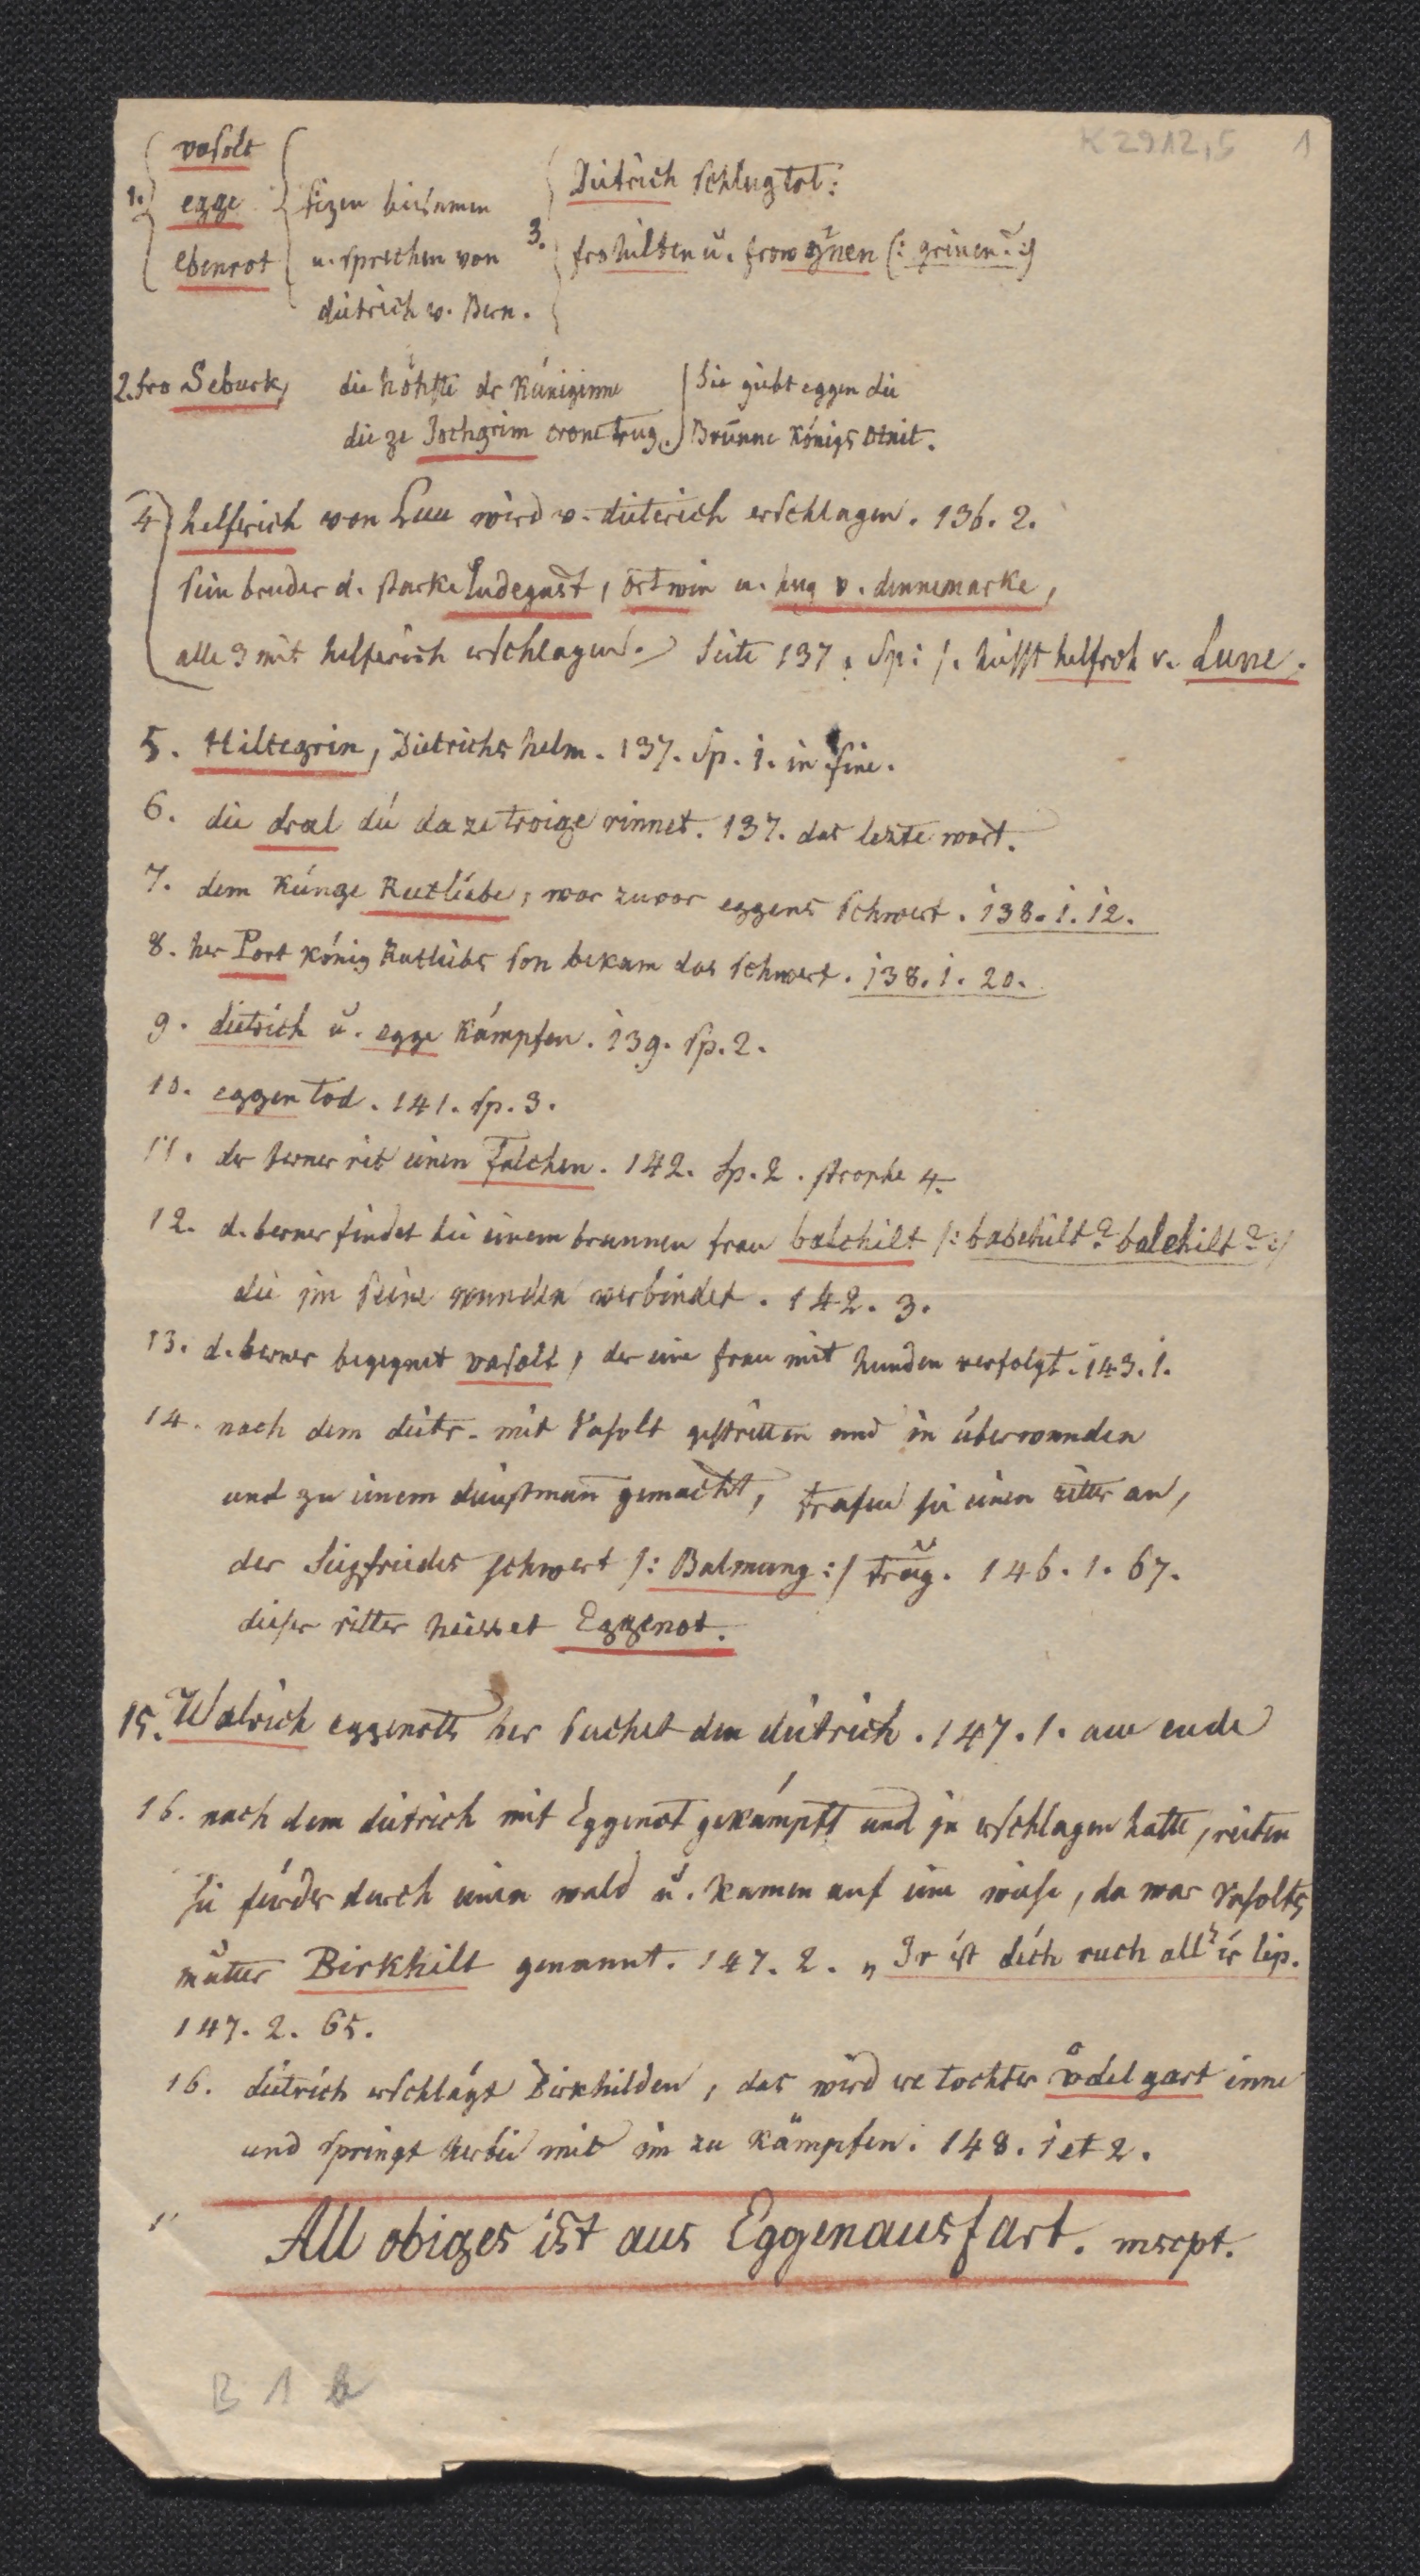 K 2912,5 1
1. vasolt
egge
ebenrot
sizen beisamen
u. sprechen von
dietrich v. Bern.
3. Dietrich schlug tot:
fro hilten ŭ. frow grinen (: grinen? :)
2. fro Seburk, die höhste der Küniginne
die ze Jochgrim crone trug.
Sie giebt eggen die
Brünne Königs Otnit.
4) helferich von Lun wird v. dieterich erschlagen. 136. 2.
sein bruder d. starke Ludegast, ortwin u. hug v. dennemarke,
alle 3 mit helferich erschlagen. Seite 137. Sp: 1. heisst helfrch v. Lune.
5. Hiltegrin, Dietrichs helm. 137. Sp. 1. in fine.
6. die dral dú da ze troige rinnet. 137. das lezte wort.
7. dem Künge Rutliebe, war zuvor eggens schwert. 138. 1. 12.
8. her Port König Rutliebs son bekam das schwert. 138. 1. 20.
9. dietrich ŭ. egge Kämpfen. 139. Sp. 2.
10. eggen Tod. 141. Sp. 3.
11. der berner rit einen Falchen. 142. Sp. 2. strophe 4.
12. d. berner findet bei einem brunnen frau balchilt /: babehilt? balehilt? :/
die im seine wunden verbindet. 142. 3.
13. d. berner begegnet vasolt, der eine frau mit hunden verfolgt. 143. 1.
14. nach dem dietr. mit Vasolt gestritten und in überwunden
und zu einem dienstman gemacht, trafen sie einen ritter an,
der Siegfriedes schwert /: Balmung :/ trŭg. 146. 1. 67.
dieser ritter heisset Eggenot.
15. Walrich eggenots her suchet den dietrich. 147. 1. am ende
16. nach dem dietrich mit Eggenot gekämpft und in erschlagen hatte, reiten
sie fürder durch einen wald ŭ. kamen auf eine wiese, da war Vasolts
mŭtter Birkhilt genannt. 147. 2. „Ir ist dich ruch all' ir lip.
147. 2. 65.
16. dietrich erschlägt Birkhilden, das wird ire tochter vͦdelgart inne
und springt herbei mit im zu kämpfen. 148. 1 et 2.
All obiges ist aus Eggenausfart. mscpt.
B 1 b